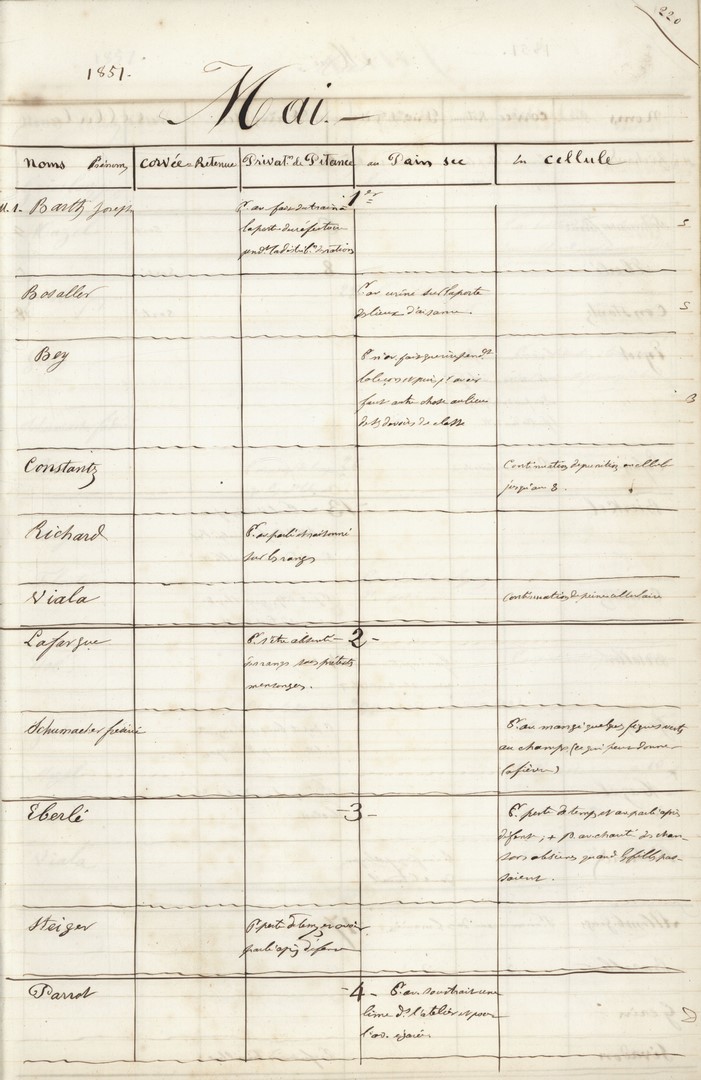 220
1851.
Mai.
Noms Prénom Corvée = Retenue Privat.n de Pitance au Pain sec En cellule
1er
M. 1. Barth Joseph
P. av. fait du train à
la porte du réfectoire
pend.t la distrib.on des rations
5
Bosaller
P. av uriné sur la porte
des lieux d'aisance.
5
Bey
P. n'av. fait que rire pend.t
la leçon et puis p.r avoir
fait autre chose au lieu
de ses devoirs de classe
3
Constantz
Continuation de punition en cellule
jusqu'au 8.
Richard
P. av parlé et raisonné
sur les rangs
Viala
Continuation de peine cellulaire
2
Lafargue
P. s'être absenté
des rangs sous prétexte
mensonger.
Schumacher
P. av mangé quelques figues vertes
au champs (ce qui peut donner
la fièvre)
3
Eberlé
P. perte de temps et av parlé après
défense; + P. av chanté des chan-
sons obscènes quand les filles pas-
saient.
Steiger
P. perte de temps et avoir
parlé après défense
4
Parrot
P. av. soustrait une
lime de l'atelier et pour
l'av.